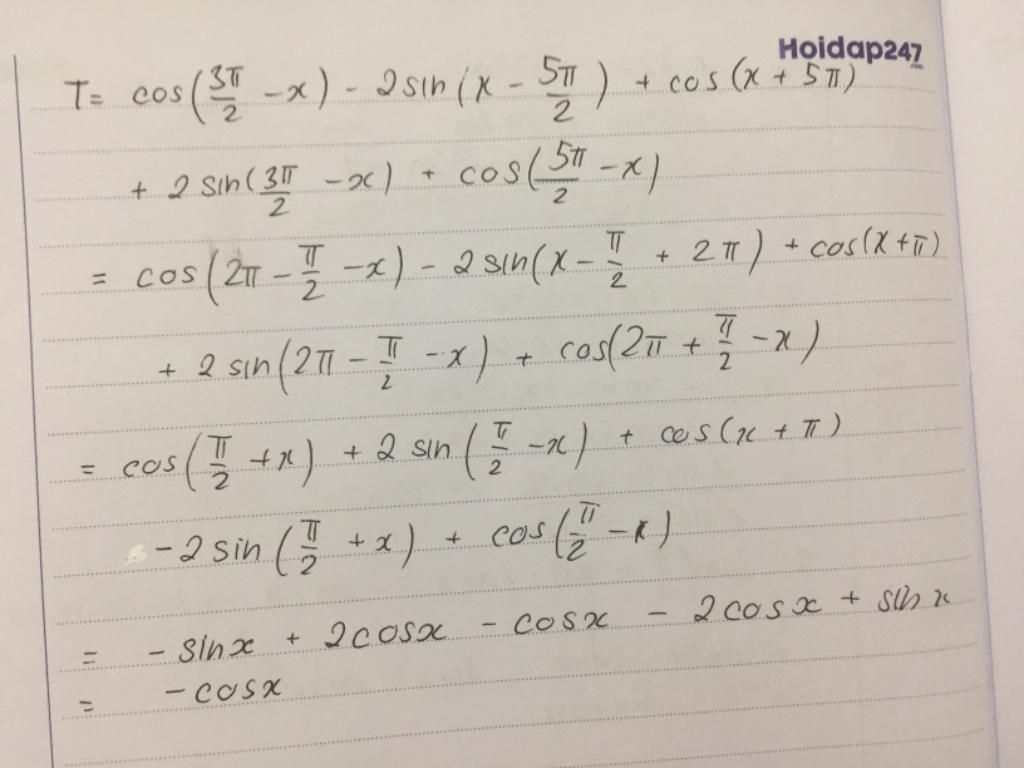 Hoidap247
T= cos(3π/2 -x) - 2sin(x - 5π/2) + cos(x + 5π)
+ 2 sin(3π/2 -x) + cos(5π/2 -x)
= cos(2π - π/2 -x) - 2 sin(x - π/2 + 2π) + cos(x+π)
+ 2 sin(2π - π/2 -x) + cos(2π + π/2 -x)
= cos(π/2 +x) + 2 sin(π/2 -x) + cos(x + π)
-2 sin(π/2 +x) + cos(π/2 -x)
= - sinx + 2cosx - cosx - 2cosx + sinx
= -cosx